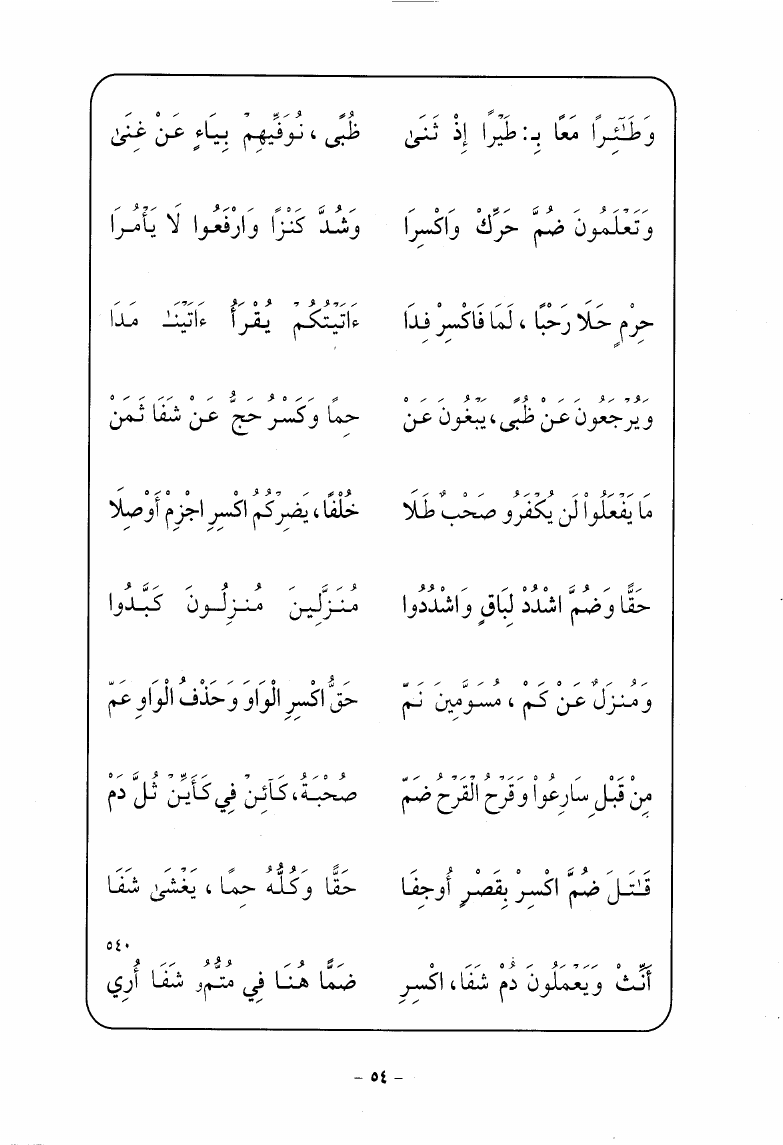 وَطَائِرًا مَعًا بِـ: طَيْرًا إِذْ ثَنَىٰ ظُبًى ، نُوَفِّيهِمْ بِيَاءٍ عَنْ غِنَىٰ
وَتَعْلَمُونَ ضُمَّ حَرِّكْ وَاكْسِرَا وَشُدَّ كَنْزًا وَارْفَعُوا لَا يَأْمُرَا
حِرْمٍ حَلَا رَحْبًا ، لَمَا فَاكْسِرْ فِدَا ءَاتَيْتُكُمْ يُقْرَأُ ءَاتَيْنَـا مَدَا
وَيُرْجَعُونَ عَنْ ظُبًى، يَبْغُونَ عَنْ حِمًا وَكَسْرُ حَجُّ عَنْ شَفَا ثَمَنْ
مَا يَفْعَلُوا لَن يُكْفَرُو صَحْبٌ طَلَا خُلْفًا، يَضِرْكُمُ اكْسِرِ اجْزِمْ أَوْصِلَا
حَقًّا وَضُمَّ اشْدُدْ لِبَاقٍ وَاشْدُدُوا مُنَزَّلِينَ مُنزِلُونَ كَبَّدُوا
وَمُنزَلٌ عَنْ كَمْ ، مُسَوَّمِينَ نَمّ حَقُّ اكْسِرِ الْوَاوَ وَحَذْفُ الْوَاوِ عَمّ
مِنْ قَبْلِ سَارِعُوا وَقَرْحُ الْقَرْحُ ضَمّ صُحْبَةُ، كَائِنْ فِي كَأَيِّنْ ثُلَّ دُمْ
قَاتَلَ ضُمَّ اكْسِرْ بِقَصْرٍ أُوجِفَا حَقًّا وَكُلُّهُ حِمًا ، يَغْشَىٰ شَفَا
٥٤٠
أَنِّثْ وَيَعْمَلُونَ دُمْ شَفَا، اكْسِرِ ضَمًّا هُنَا فِي مُتُّمُو شَفَا أُرِي
– ٥٤ –